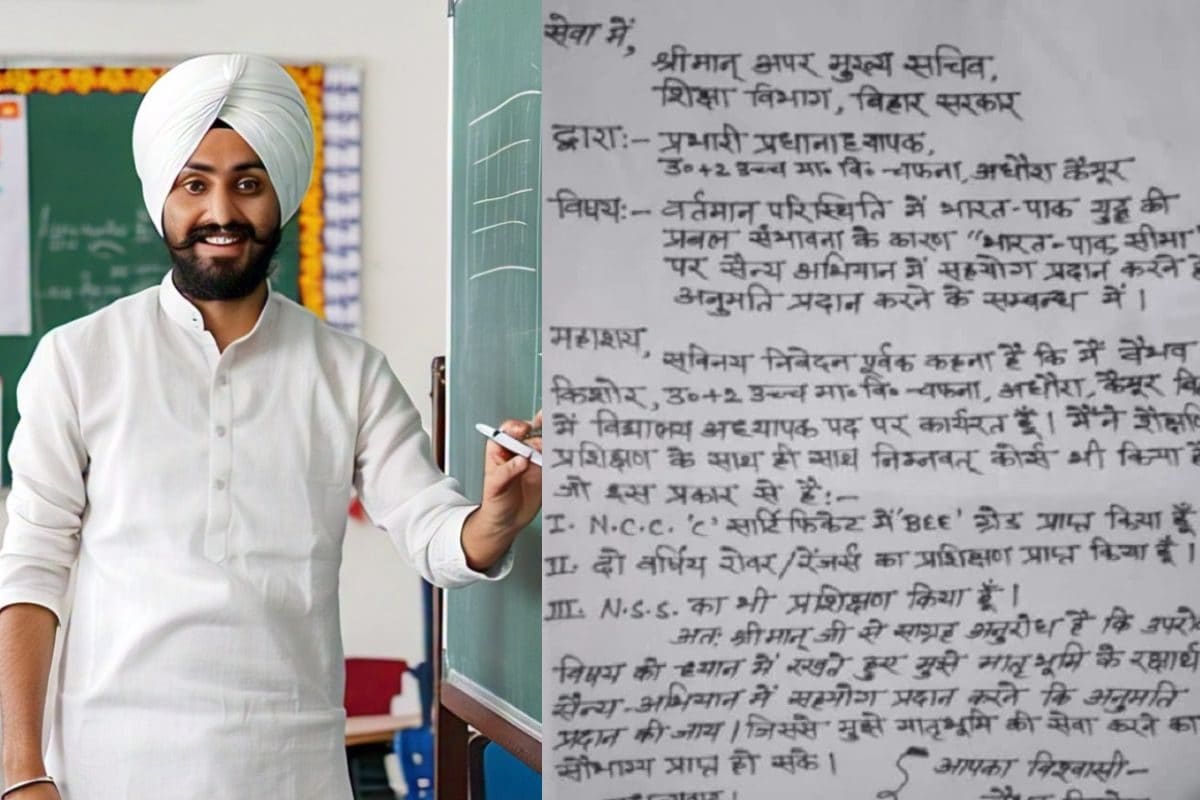 सेवा में,
श्रीमान् अपर मुख्य सचिव,
शिक्षा विभाग, बिहार सरकार
द्वारा:- प्रभारी प्रधानाध्यापक,
उ०+2 उच्च मा० वि०-चफना, अधौरा कैमूर
विषय:- वर्तमान परिस्थिति में भारत-पाक युद्ध की
प्रबल संभावना के कारण "भारत-पाक सीमा"
पर सैन्य अभियान में सहयोग प्रदान करने
अनुमति प्रदान करने के सम्बन्ध में।
महाशय,
सविनय निवेदन पूर्वक कहना है कि मैं वैभव
किशोर, उ०+2 उच्च मा० वि०-चफना, अधौरा, कैमूर
में विद्यालय अध्यापक पद पर कार्यरत हूँ। मैंने
प्रशिक्षण के साथ ही साथ निम्नवत् कोर्स भी किया
जो इस प्रकार से है:-
I. N.C.C. 'C' सार्टिफिकेट में 'BEE' ग्रेड प्राप्त किया हूँ
II. दो वर्षिय रोवर/रेंजर्स का प्रशिक्षण प्राप्त किया हूँ।
III. N.S.S. का भी प्रशिक्षण किया हूँ।
अत: श्रीमान् जी से साग्रह अनुरोध है कि
विषय को ध्यान में रखते हुए मुझे मातृभूमि के रक्षार्थ
सैन्य-अभियान में सहयोग प्रदान करने कि अनुमति
प्रदान की जाय। जिससे मुझे मातृभूमि की सेवा करने का
सौभाग्य प्राप्त हो सके।
आपका विश्वासी-